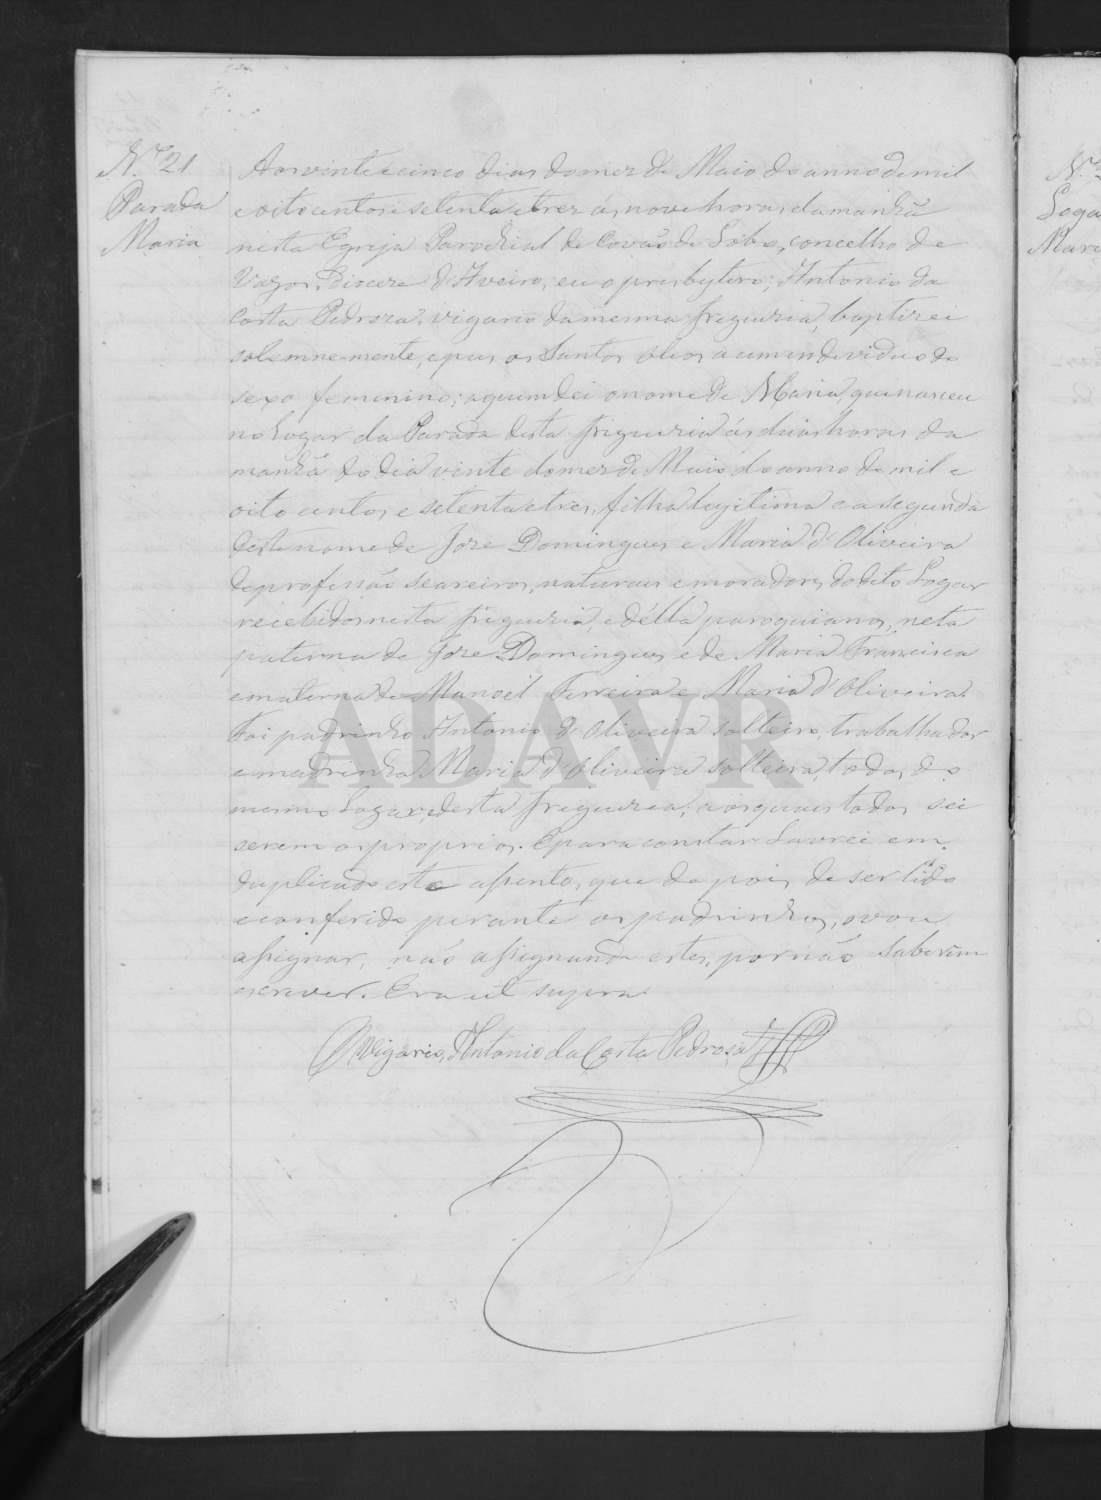 N.º 21
Parada
Maria
Aos vinte e cinco dias do mez de Maio do anno de mil
e oito centos e setenta e trez ás nove horas da manhã
nesta Egreja Parochial de Covão de Lobo, concelho de
Vagos, Diocese d'Aveiro, eu o presbytero, Antonio da
Costa Pedroza, vigario da mesma freguezia, baptizei
solemnemente, e puz os Santos oleos a um individuo do
sexo femenino; a quem dei o nome de Maria, que nasceu
no Logar da Parada desta freguezia ás duas horas da
manhã do dia vinte do mez de Maio do anno de mil e
oito centos e setenta e trez, filha legitima e a segunda
deste nome de Joze Domingues e Maria d'Oliveira
de profissão seareiros, naturaes e moradores do dito Logar
recebidos nesta freguezia, e d'élla paroquianos, neta
paterna de Joze Domingues e de Maria Francisca
e materna de Manoel Ferreira e Maria d'Oliveira.
Foi padrinho Antonio d'Oliveira solteiro, trabalhador
e madrinha Maria d'Oliveira solteira, todos do
mesmo Logar, desta freguezia; aos quaes todos sei
serem os proprios. E para constar lavrei em
duplicado este assento, que depois de ser lido
e conferido perante os padrinhos, o vou
assignar, não assignando estes, por não saberem
escrever. Era ut supra.
O Vigario, Antonio da Costa Pedroza
ADAVR
N.º
Loga
Mari